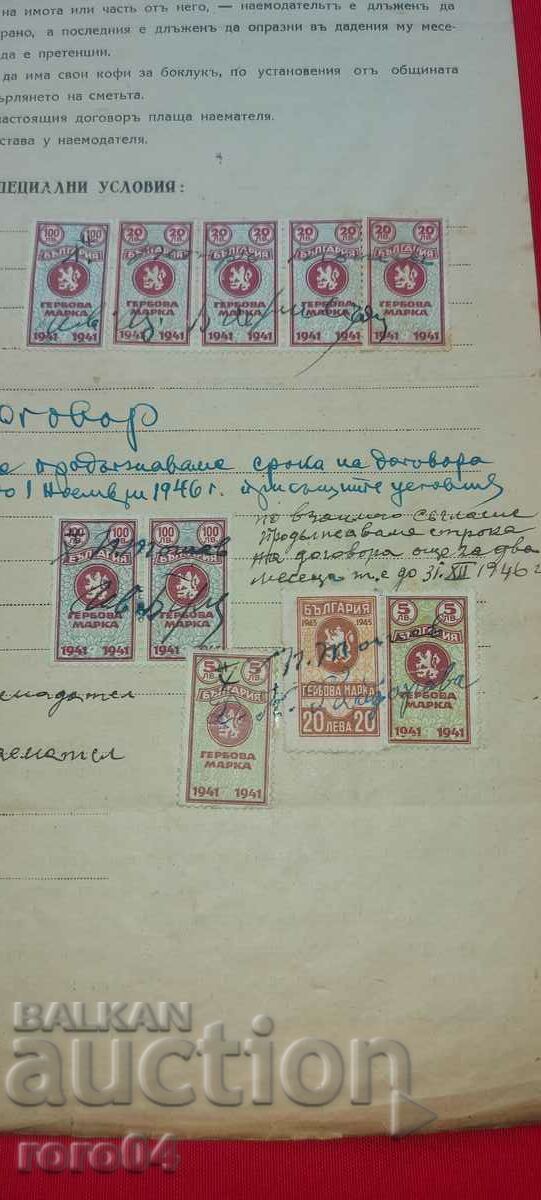 на имота или часть отъ него, — наемодательтъ е длъженъ да
рано, а последния е длъженъ да опразни въ дадения му месе-
да е претенции.
да има свои кофи за боклукъ, по установения отъ общината
ърлянето на сметьта.
астоящия договоръ плаща наемателя.
става у наемодателя.
ПЕЦИАЛНИ УСЛОВИЯ:
100 ЛВ. 100 ЛВ. БЪЛГАРИЯ ГЕРБОВА МАРКА 1941 1941
20 ЛВ. 20 ЛВ. БЪЛГАРИЯ ГЕРБОВА МАРКА 1941 1941
20 ЛВ. 20 ЛВ. БЪЛГАРИЯ ГЕРБОВА МАРКА 1941 1941
20 ЛВ. 20 ЛВ. БЪЛГАРИЯ ГЕРБОВА МАРКА 1941 1941
20 ЛВ. 20 ЛВ. БЪЛГАРИЯ ГЕРБОВА МАРКА 1941 1941
оговор
е продължаваме срока на договора
о 1 Ноември 1946 г. при същите условия
по взаимно съгласие
продължаваме строка
на договора още за два
месеца т.е до 31.XII 1946 г
100 ЛВ. 100 ЛВ. БЪЛГАРИЯ ГЕРБОВА МАРКА 1941 1941
100 ЛВ. 100 ЛВ. БЪЛГАРИЯ ГЕРБОВА МАРКА 1941 1941
БЪЛГАРИЯ 1945 1945 ГЕРБОВА МАРКА 20 ЛЕВА 20
5 ЛВ. 5 ЛВ. БЪЛГАРИЯ ГЕРБОВА МАРКА 1941 1941
5 ЛВ. 5 ЛВ. БЪЛГАРИЯ ГЕРБОВА МАРКА 1941 1941
емодател
аемател
BALKAN
auction
roro04